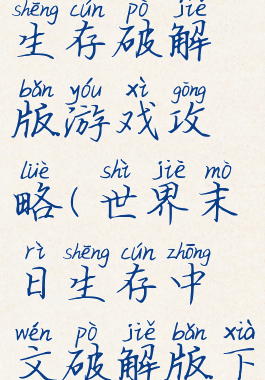 shēng cún pò jiě
生存破解
bǎn yóu xì gōng
版游戏攻
lüè shì jiè mò
略(世界末
rì shēng cún zhōng
日生存中
wén pò jiě bǎn xià
文破解版下